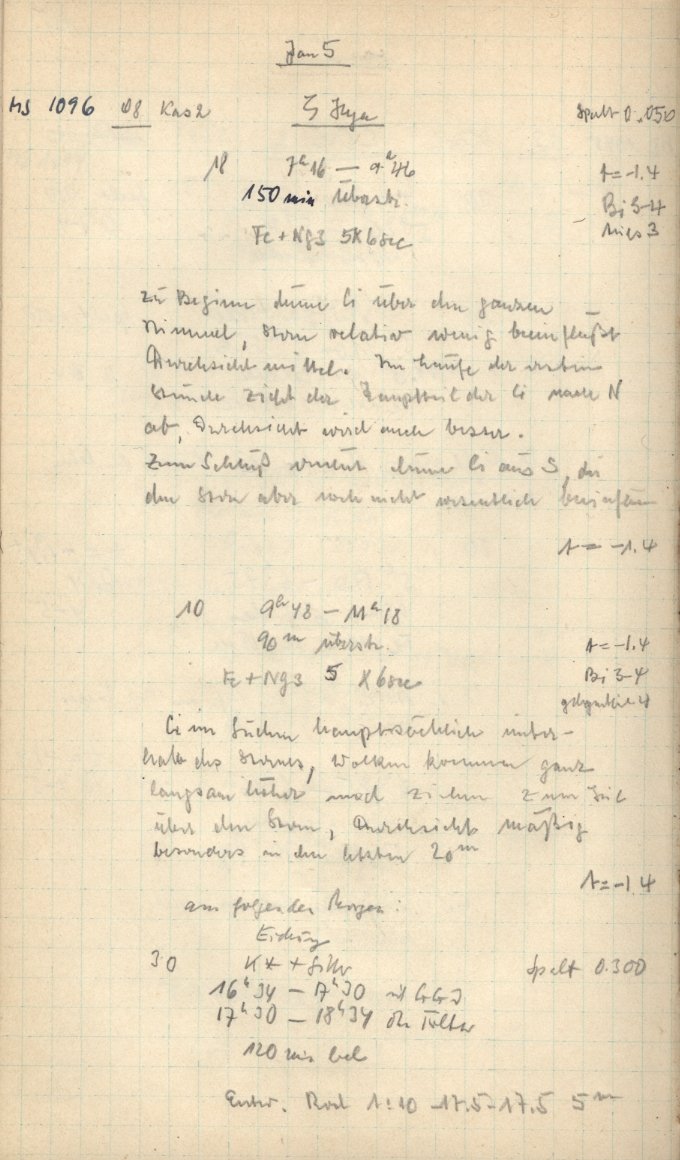 Jan 5
MS 1096 08 Kas2 ζ Hya Spalt 0.050
18 7h16 — 9h46 t=-1.4
150 min überstr. Bi 3-4
Fe + Ng3 5X6sec 3
zu Beginn dünne Ci über den ganzen
Himmel, Stern relativ wenig beeinflußt
Durchsicht mittel. Im Laufe der ersten
Stunde zieht der Hauptteil der Ci nach N
ab, Durchsicht wird auch besser.
Zum Schluß erneut dünne Ci aus S, die
den Stern aber noch nicht wesentlich
t = -1.4
10 9h48 — 11h18
90m überstr. t=-1.4
Fe + Ng3 5 X6sec Bi 3-4
Ci im Süden hauptsächlich unter-
halb des Sternes, Wolken kommen ganz
langsam höher und ziehen zum Teil
über den Stern, Durchsicht mäßig
besonders in den letzten 20m
t=-1.4
am folgenden Morgen:
Eichung
30 Spalt 0.300
16h34 — 17h30 mit
17h30 — 18h34 ohne Filter
120 min bel
Entw. Rod 1:10 17.5-17.5 5m